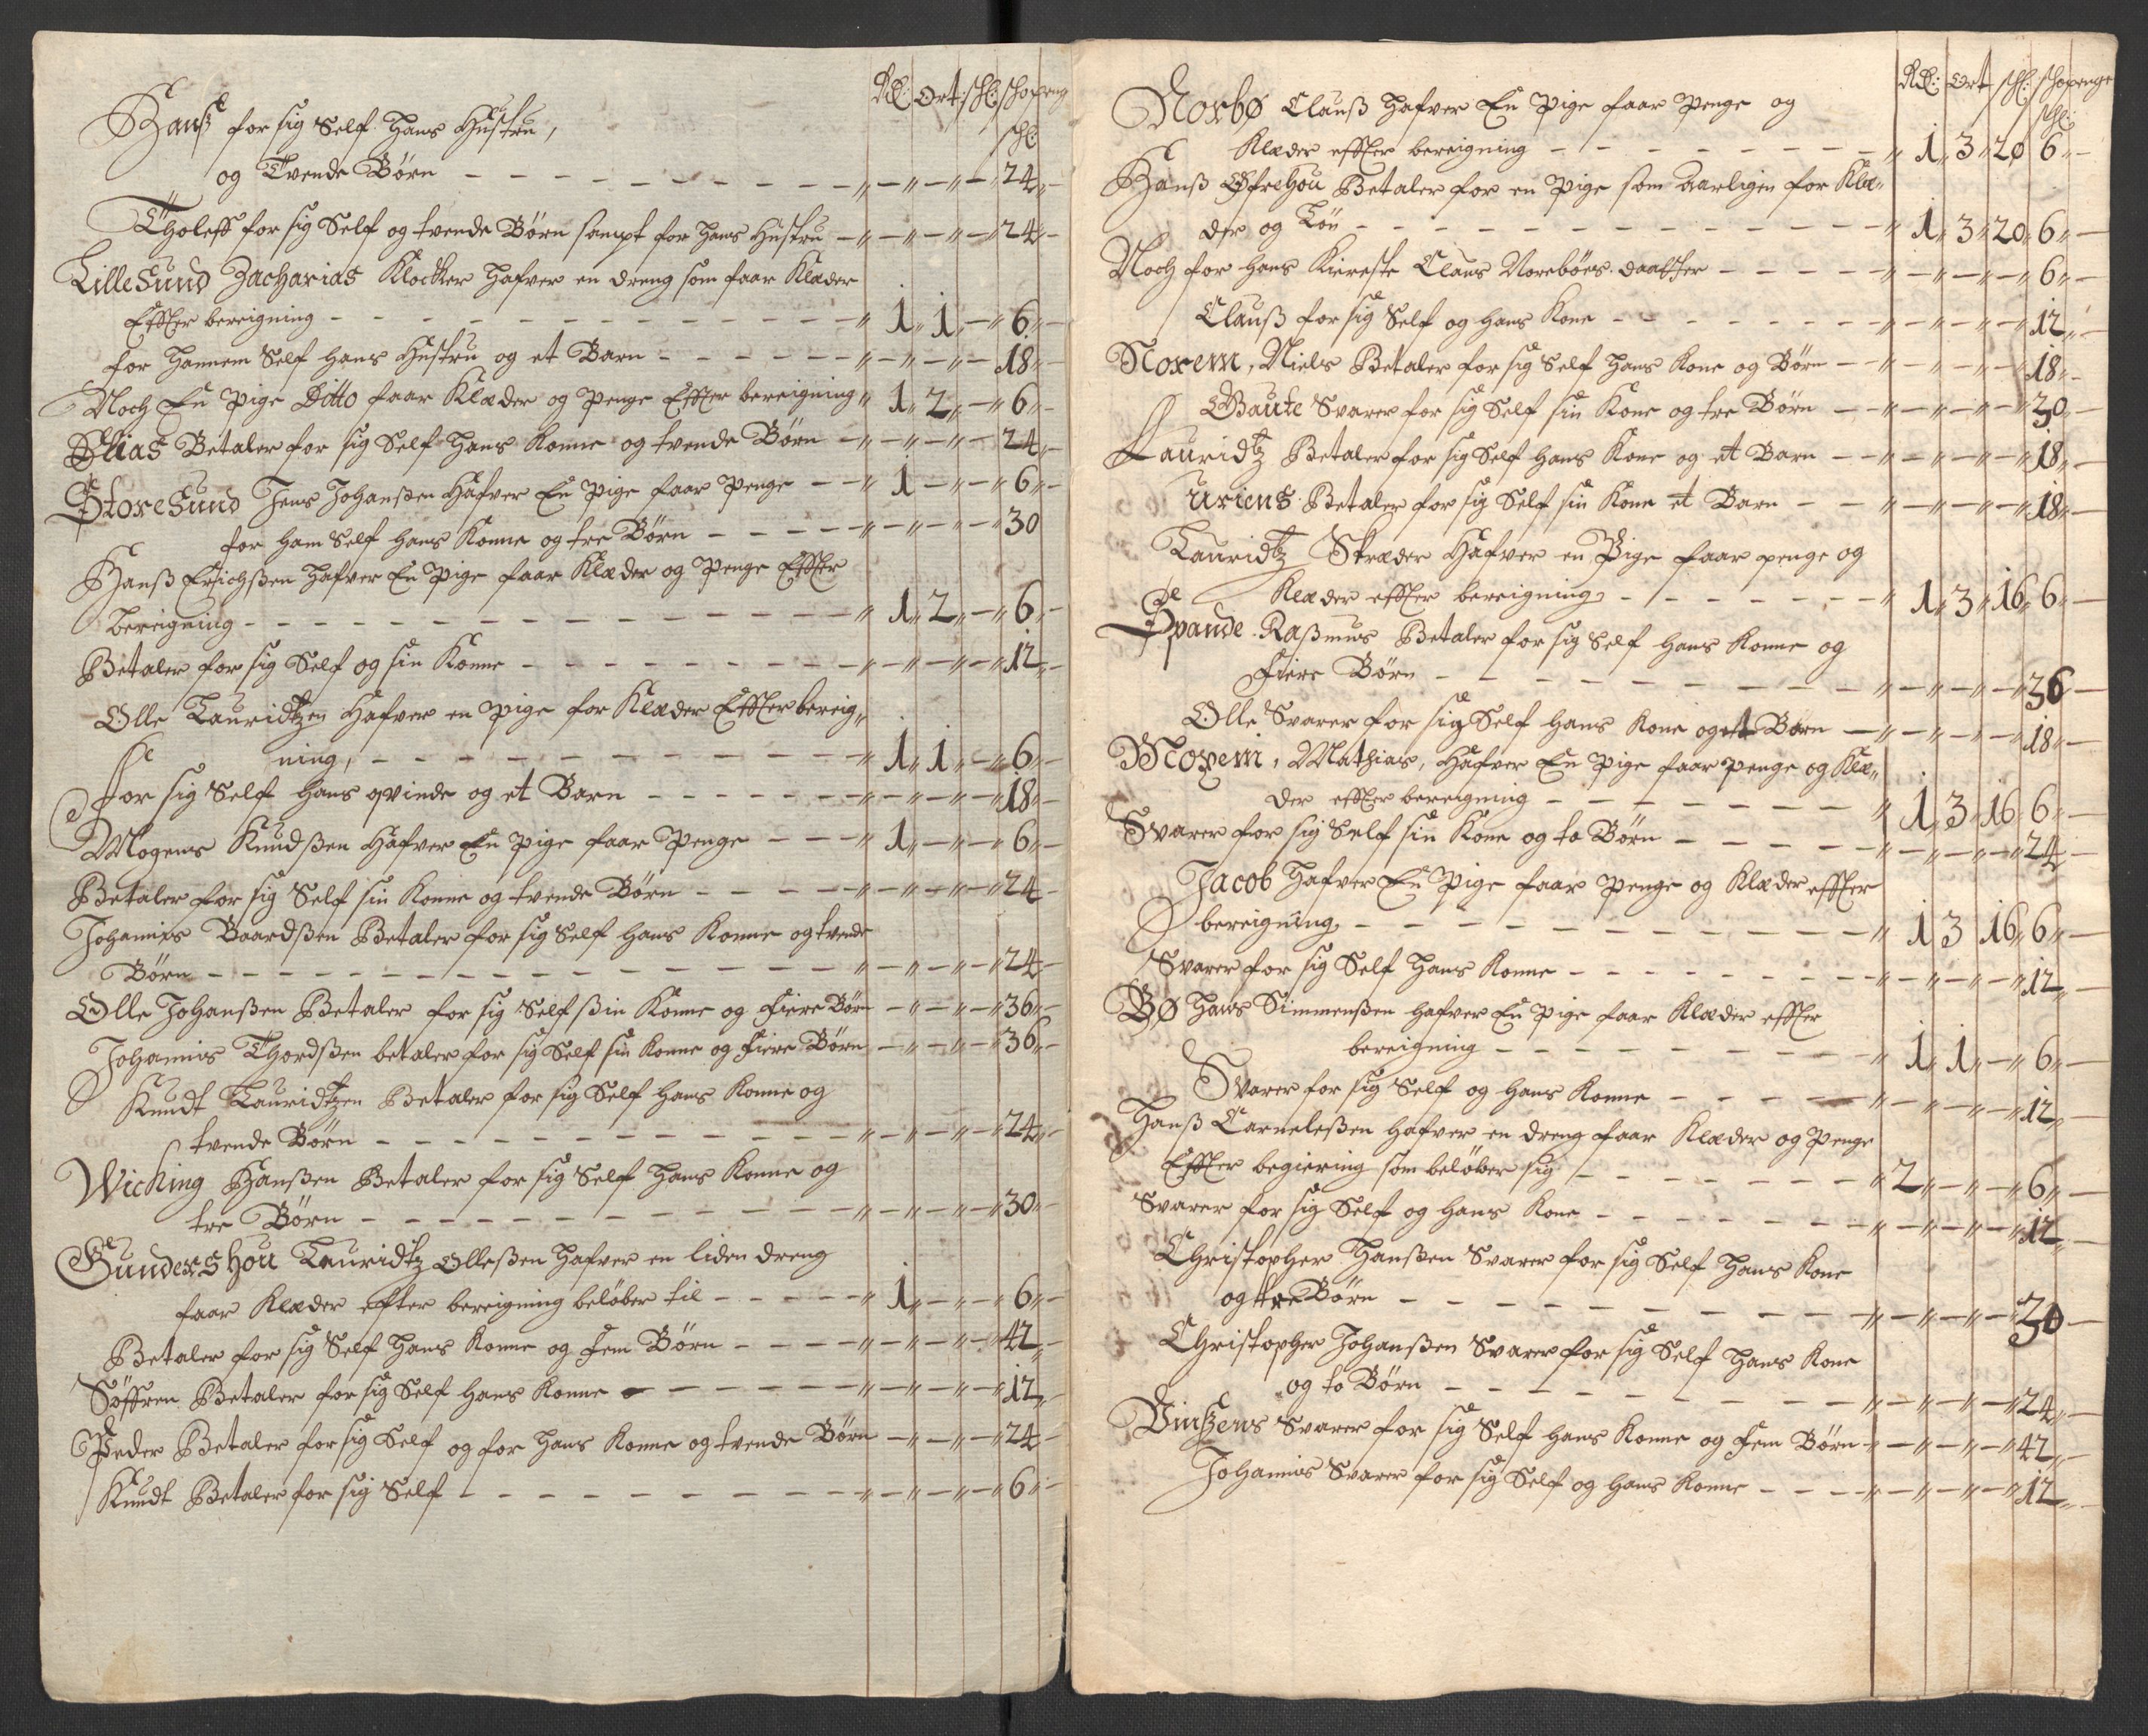 Rd: Ort: schl: schopeng
schl:
Hanß for sig Self hans Hustru,
og Tvende Børn - - - „ - „ - „ - „ 24 „ -
Tholeff for sig Self og tvende Børn sampt for hans Hustru - „ - „ - „ - „ 24 „ -
Lillesund Zacharias Klocker hafver en dreng som faar Klæder
Effter bereigning - - - „ 1 „ 1 „ - „ 6 „ -
for hannem Self hans Hustru og et Barn - - - „ - „ - „ - 18 „ -
Noch En Pige Ditto faar Klæder og Penge Effter bereigning „ 1 „ 2 „ - „ 6 „ -
Elias Betaler for sig Self hans Konne og tvende Børn - „ - „ - „ - 24 „ -
Storesund Jens Johanßen hafver En Pige faar Penge - - „ 1 - „ - „ 6 „ -
for ham Self hans Konne og tre Børn - - - „ - „ - „ - „ 30
Hanß Erichßen hafver En Pige faar Klæder og Penge Effter
bereigning - - - „ 1 „ 2 „ - „ 6 „ -
Betaler for sig Self og sin Konne - - - „ - „ - „ - „ 12 „ -
Olle Lauridtzen hafver en Pige for Klæder Effter bereig„
ning, - - - „ 1 „ 1 „ - „ 6 „ -
for sig Self hans qvinde og et Barn - - - „ - „ - „ - „ 18 „ -
Mogens Knudßen hafver En Pige faar Penge - - - „ 1 „ - „ - „ 6 „ -
Betaler for sig Self sin Konne og tvende Børn - - - „ - „ - „ - „ 24 -
Johannis Baardßen Betaler for sig Self hans Konne og tvende
Børn - - - „ - „ - „ - „ 24 „ -
Olle Johanßen Betaler for sig Self ßin Konne og Fiere Børn - „ - „ - „ 36 „ -
Johannis Thordßen betaler for sig Self sin Konne og Fiere Børn - „ - „ - „ 36 „ -
Knudt Lauridtzen Betaler for sig Self hans Konne og
tvende Børn - - - „ - „ - „ - „ 24 „ -
Wiching Hanßen Betaler for sig Self hans Konne og
tre Børn - - - „ - „ - „ - „ 30 „ -
Gunders hou Lauridtz Olleßen hafver en liden dreng
faar Klæder efter bereigning beløber til - - - „ 1 „ - „ - „ 6 „ -
Betaler for sig Self hans Konne og Fem Børn - - - „ - „ - „ - „ 42 „ -
Søffren Betaler for sig Self hans Konne - - - „ - „ - „ - „ 12 „ -
Peder Betaler for sig Self og for hans Konne og tvende Børn - „ - „ - „ 24 -
Knudt Betaler for sig Self - - - „ - „ - „ - „ 6 „ -
Rd: Ort schl: schopenge
schl:
Norbø Clauß hafver En Pige faar Penge og
Klæder effter bereigning - - - „ 1 „ 3 „ 20 6 „ -
Hanß Øfrehou Betaler for en Pige som aarligen for Klæ„
der og Løn - - - „ 1 „ 3 „ 20 „ 6 „ -
Noch for hans Kiereste Claus Norebøes daatter - - - „ - „ - „ - „ 6 „ -
Clauß for sig Self og hans Kone - - - „ - „ - „ - „ 12 „ -
Norem, Niels Betaler for sig Self hans Kone og Børn - „ - „ - „ - „ 18 „ -
Gaute Svarer for sig Self sin Kone og tre Børn - „ - „ - „ - „ 30 „ -
Lauridtz Betaler for sig Self hans Kone og et Barn - - „ - „ - „ - „ 18 „ -
Uriens Betaler for sig Self sin Kone et Barn - - „ - „ - „ - „ 18 „ -
Lauridtz Skræder hafver en Pige faar penge og
Klæder effter bereigning, - - - „ 1 „ 3 „ 16 „ 6 „ -
Spande Raßmus Betaler for sig Self hans Konne og
Fiere Børn - - - „ - „ - „ - „ 36 -
Olle Svarer for sig Self hans Kone og et Børn - „ - „ - „ - „ 18 „ -
Noxem, Mathias, hafver En Pige faar penge og Klæ„
der effter bereigning - - - „ 1 „ 3 „ 16 6 „ -
Svarer for sig Self sin Kone og to Børn - - - „ - „ - „ - „ 24 -
Jacob hafver En Pige faar Penge og Klæder effter
bereigning, - - - „ 1 3 16 „ 6 „ -
Svarer for sig Self hans Konne - - - „ - „ - „ - „ 12 „ -
Bø Hans Simmenßen hafver En Pige faar Klæder effter
bereigning - - - „ 1 „ 1 „ - „ 6 „ -
Svarer for sig Self og hans Konne - - - „ - „ - „ - „ 12 „ -
Hanß Carneleßen hafver en dreng faar Klæder og Penge
Effter begiering som beløber sig - - - „ 2 „ - „ - „ 6 „ -
Svarer for sig Self og hans Kone - - - „ - „ - „ - „ 12 „ -
Christopher Hanßen Svarer for sig Self hans Kone
og tre Børn - - - „ - „ - „ - „ 30 -
Christopher Johanßen Svarer for sig Self hans Kone
og to Børn - - - „ - „ - „ - „ 24 „ -
Vintzens Svarer for sig Self hans Konne og Fem Børn - „ - „ - „ - „ 42 „ -
Johannis Svarer for sig Self og hans Konne - - - „ - „ - „ - „ 12 „ -